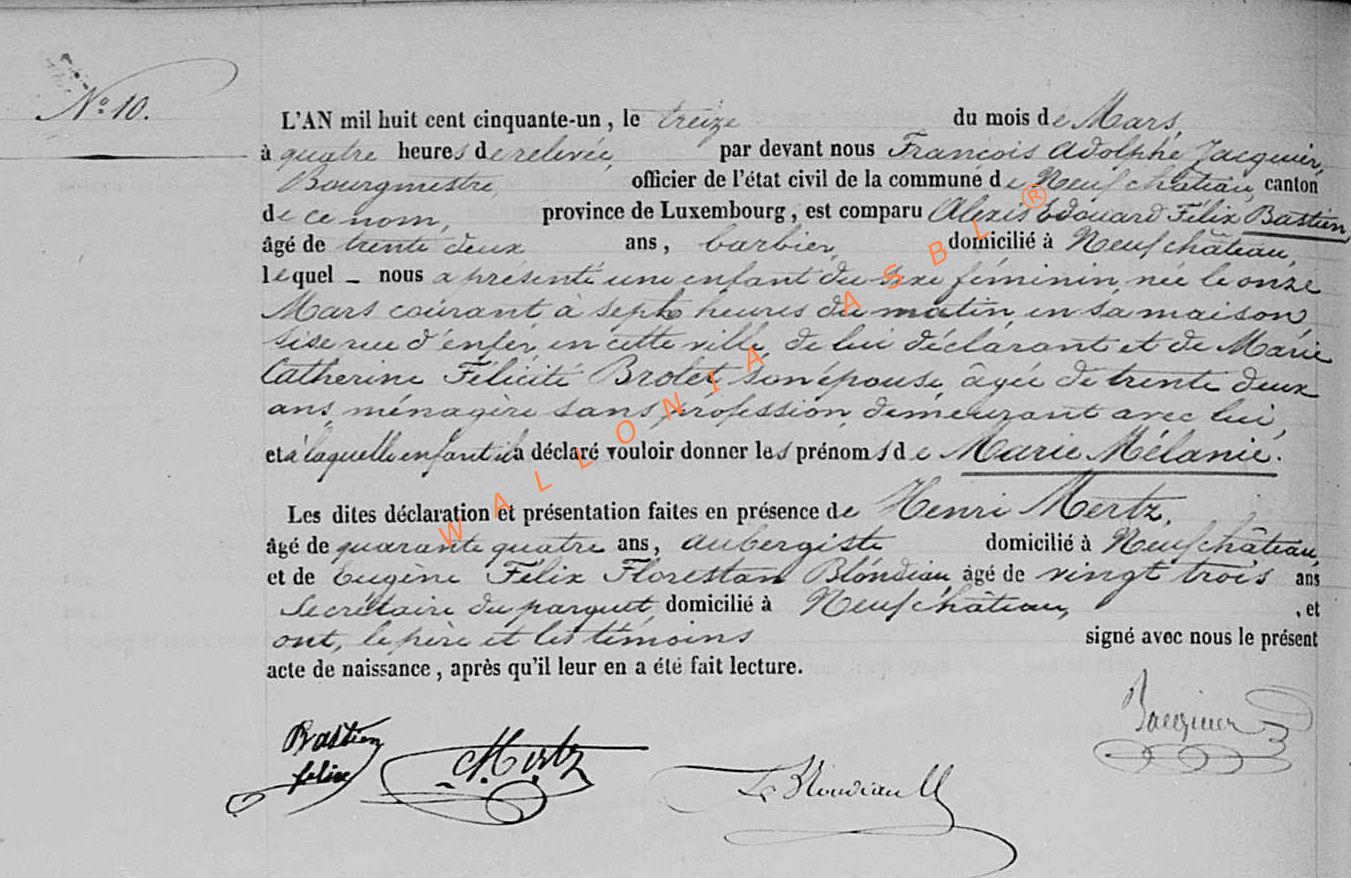 N° 10.
L'AN mil huit cent cinquante-un, le treize du mois de Mars,
à quatre heures de relevée, par devant nous François Adolphe Jacquier,
Bourgmestre, officier de l'état civil de la commune de Neufchâteau, canton
de ce nom, province de Luxembourg, est comparu Alexis Edouard Félix Bastien,
âgé de trente deux ans, barbier, domicilié à Neufchâteau,
lequel – nous a présenté une enfant du sexe féminin, née le onze
Mars courant à sept heures du matin, en sa maison,
sise rue d'enfer, en cette ville, de lui déclarant et de Marie
Catherine Félicité Brolet, son épouse, âgée de trente deux
ans, ménagère sans profession, demeurant avec lui,
et à laquelle enfant il a déclaré vouloir donner les prénoms de Marie Mélanie.
Les dites déclaration et présentation faites en présence de Henri Mertz,
âgé de quarante quatre ans, aubergiste domicilié à Neufchâteau,
et de Eugène Félix Florestan Blondiau, âgé de vingt trois ans
Secrétaire du parquet, domicilié à Neufchâteau, , et
ont, le père et les témoins signé avec nous le présent
acte de naissance, après qu'il leur en a été fait lecture.
Jacquier
Bastien
felix
H. Mertz
Blondiau
WALLONIA ASBL ®